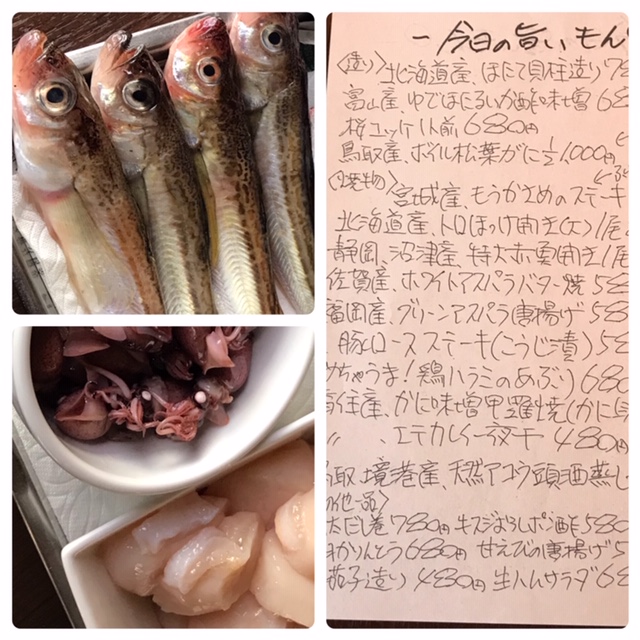 一今日の旨いもん
〈造り〉北海道産、ほたて貝柱造り7
富山産、ゆでほたるいか酢味噌68
桜ユッケ1人前680円
鳥取産、ボイル松葉がに1/2 1,000円
〈焼物〉宮城産、もうかさめのステーキ
北海道産、トロほっけ開き(大)1尾
静岡、沼津産、特大赤魚開き1尾
佐賀産、ホワイトアスパラバター焼58
福岡産、グリーンアスパラ唐揚げ58
豚ロースステーキ(こうじ漬)58
めちゃうま!鶏ハラミのあぶり)680
香住産、かに味噌甲羅焼(かに
〃、エテカレイ一夜干480円
鳥取、境港産、天然アコウ頭酒蒸し
の他一品〉
だし巻780円 牛スジおろしポン酢580
かりんとう680円 甘えびの唐揚げ5
茄子造り480円 生ハムサラダ68